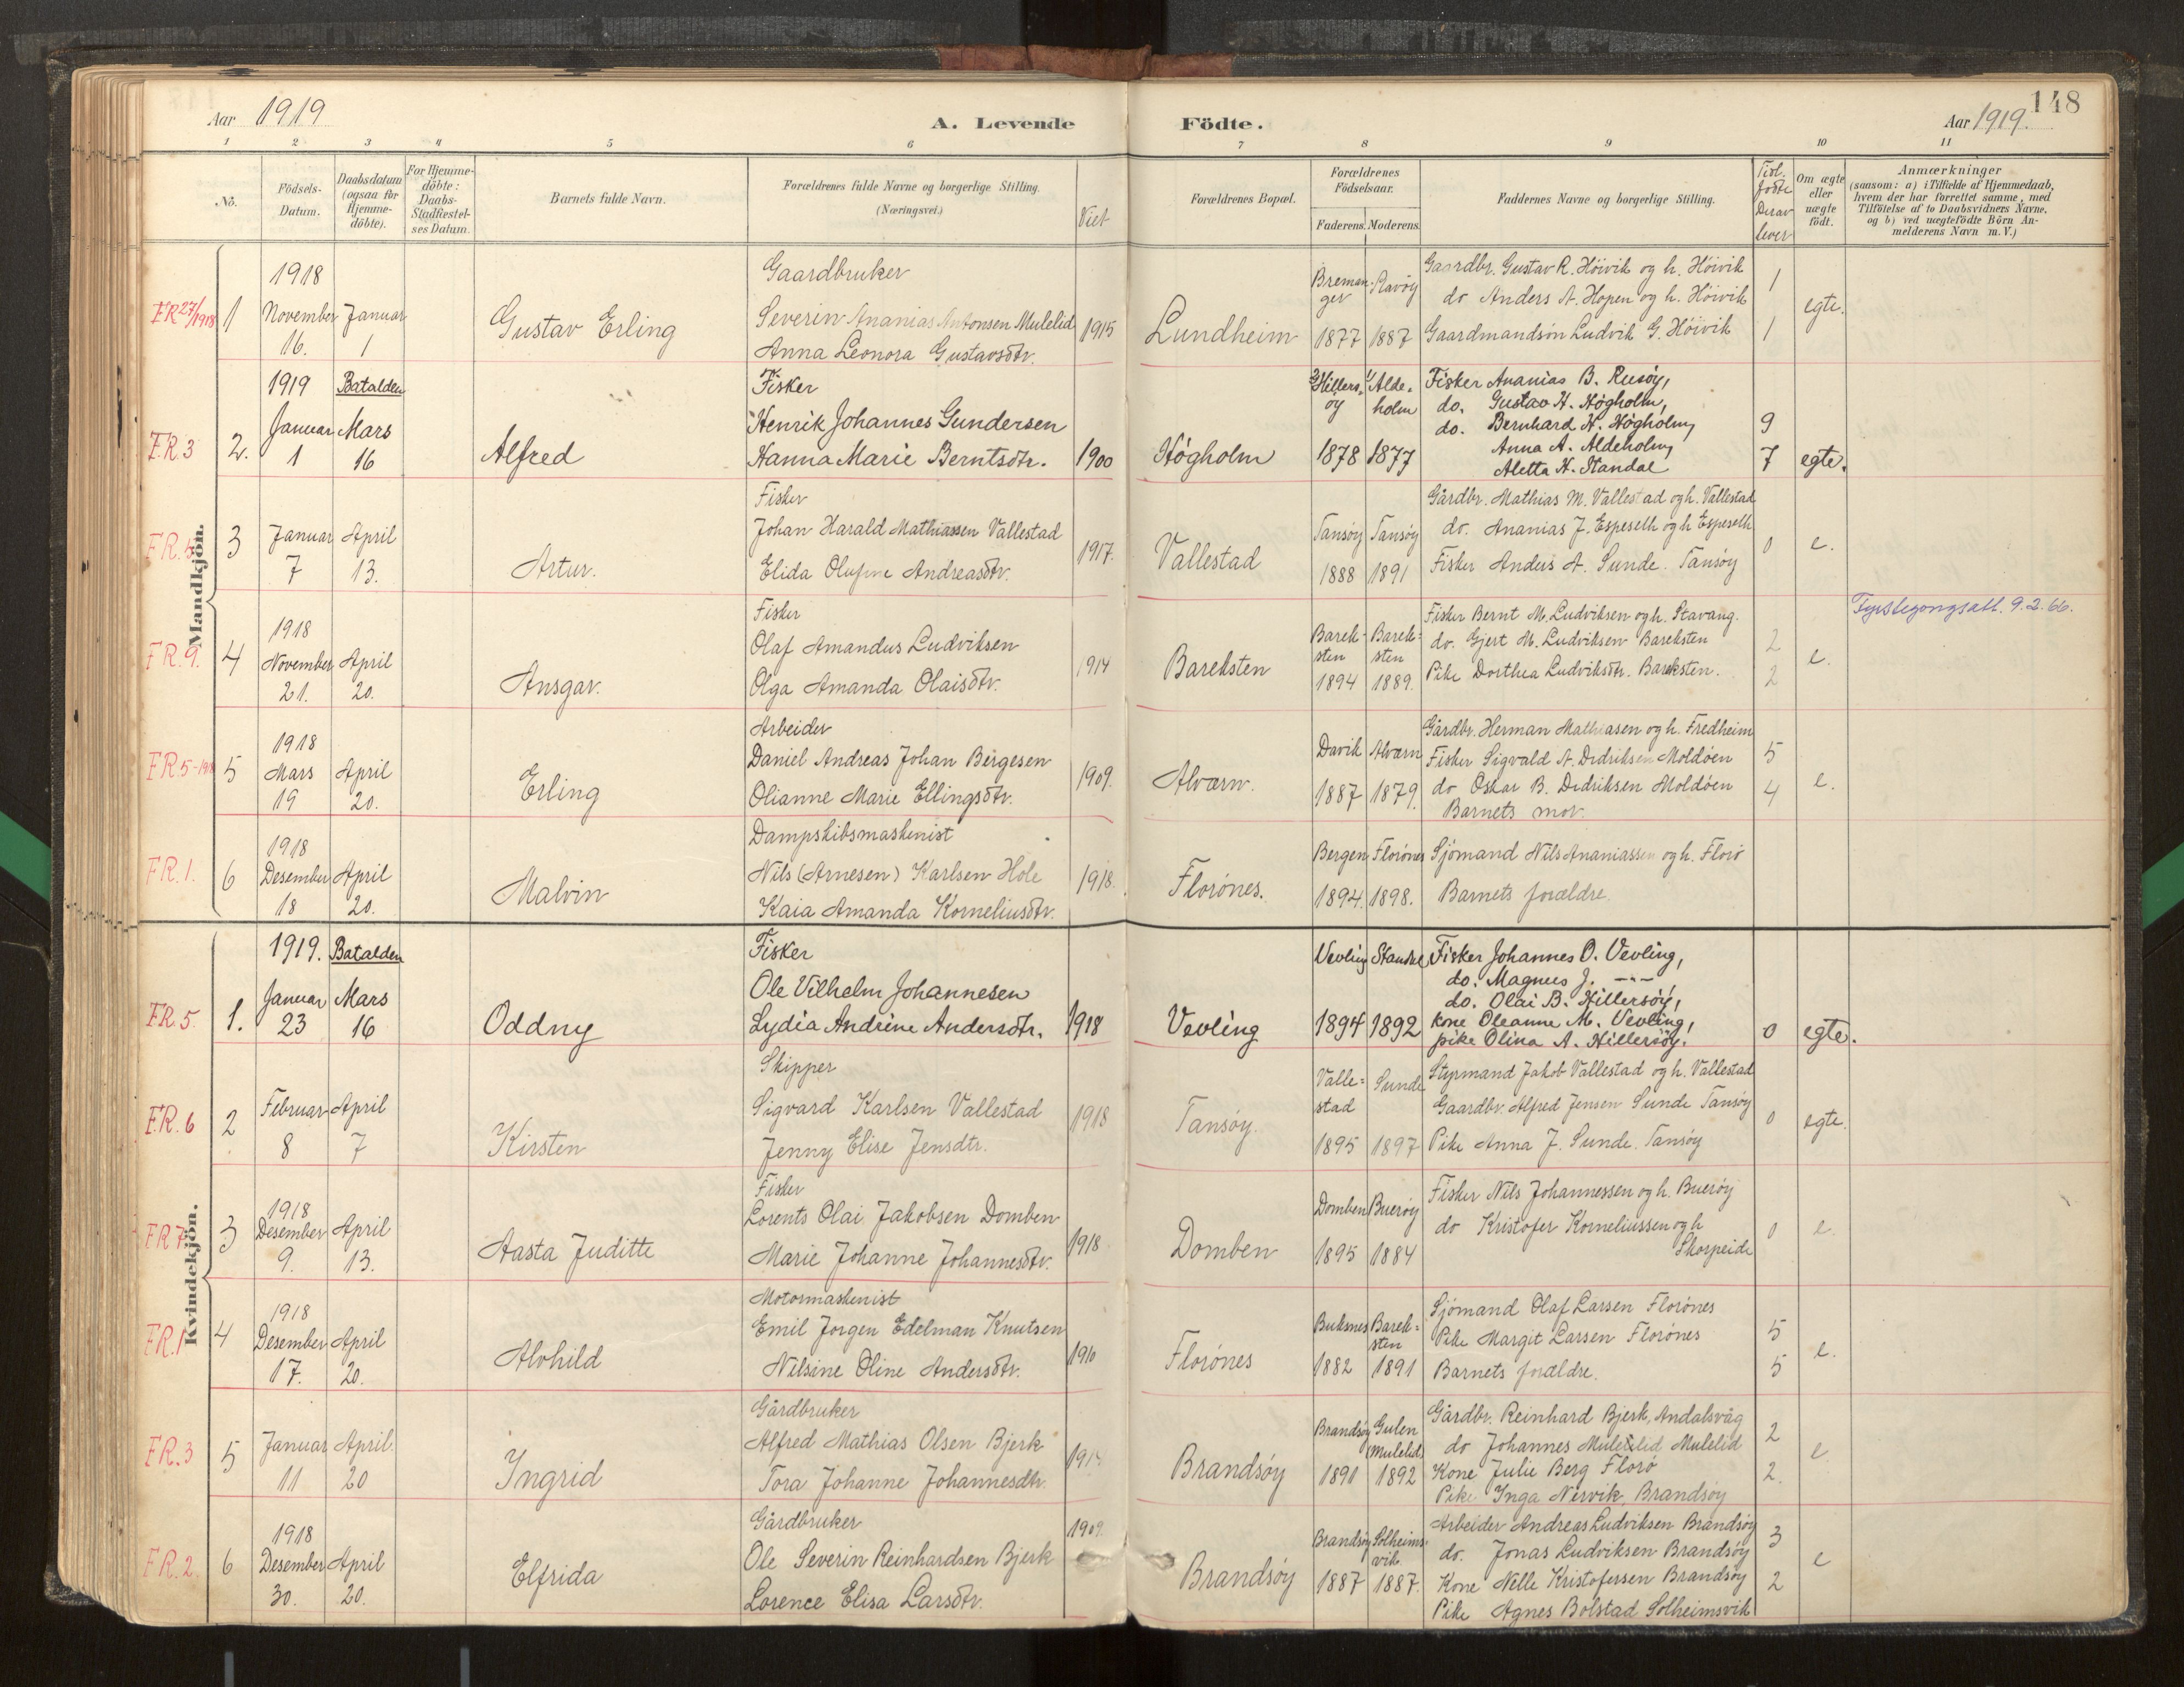 Aar 1919
A. Levende Födte.
Aar 1919.
148
1 2 3 4 5 6 7 8 9 10 11
No.
Födsels-Datum.
Daabsdatum (ogsaa for Hjemme-döbte).
For Hjemme-döbte: Daabs-Stadfæstel-ses Datum.
Barnets fulde Navn.
Forældrenes fulde Navne og borgerlige Stilling.
(Næringsvei.)
Viet
Forældrenes Bopæl.
Forældrenes Födselsaar.
Faderens. Moderens.
Faddernes Navne og borgerlige Stilling.
Tidl. fødte Derav lever
Om ægte eller uægte födt.
Anmærkninger
(saasom: a) i Tilfælde af Hjemmedaab, hvem der har forrettet samme, med Tilföielse af to Daabsvidners Navne, og b) ved uægtefödte Börn An-melderens Navn m. V.)
Mandkjön.
FR 27/1918
1
1918 November 16.
Januar 1
Gustav Erling
Gaardbruker
Severin Ananias Antonsen Mulelid
Anna Leonora Gustavsdtr.
1915
Lundheim
Bremanger 1877
Ravöy 1887
Gaardbr. Gustav R. Höivik og h. Höivik
do Anders A. Hopen og h. Höivik
Gaardmandsön Ludvik G. Höivik
1
1
egte.
FR. 3
2.
1919 Januar 1
Batalden Mars 16
Alfred
Fisker
Henrik Johannes Gundersen
Hanna Marie Berntsdtr.
1900
Högholm
Hillersöy 1878
Aldeholm 1877
Fisker Ananias B. Rusöy,
do. Gustav H. Högholm,
do. Bernhard H. Högholm,
Anna A. Aldeholm,
Aletta H. Standal
9
7
egte.
FR. 4
3
Januar 7
April 13.
Artur.
Fisker
Johan Harald Mathiassen Vallestad
Elida Olufine Andreasdtr.
1917.
Vallestad
Tansöy 1888
Tansöy 1891
Gårdbr. Mathias M. Vallestad og h. Vallestad
do. Ananias J. Espeseth og h Espeseth
Fisker Anders A. Sunde. Tansöy
0
e.
FR. 9.
4
1918 November 21.
April 20.
Ansgar.
Fisker
Olaf Amandus Ludviksen
Olga Amanda Olaisdtr.
1914
Bareksten
Bareksten 1894
Bareksten 1889.
Fisker Bernt M. Ludviksen og h. Stavang.
do. Gjert M. Ludviksen Bareksten
Pike Dorthea Ludviksdtr. Bareksten.
2
2
e.
Fyrstegongsatt. 9.2.66.
FR 5-1918
5
1918 Mars 19
April 20.
Erling
Arbeider
Daniel Andreas Johan Börgesen
Olianne Marie Ellingsdtr.
1909.
Alværn.
Davik 1887
Alværn 1879.
Gårdbr. Herman Mathiasen og h. Fredheim
Fisker Sigvald A. Didriksen Moldöen
do Oskar B. Didriksen Moldöen
Barnets mor.
5
4
e.
FR. 1.
6
1918 Desember 18
April 20.
Malvin
Dampskibsmaskenist
Nils (Arnesen) Karlsen Hole
Kaia Amanda Korneliusdtr.
1918.
Florönes.
Bergen 1894.
Florönes 1898.
Sjömand Nils Ananiassen og h. Florö
Barnets forældre.
Kvindekjön.
FR. 5
1.
1919. Januar 23
Batalden Mars 16
Oddny
Fisker
Ole Vilhelm Johannesen
Lydia Andrine Andersdtr.
1918
Vevling
Vevling 1894
Standal 1892
Fisker Johannes O. Vevling,
do. Magnus J. -"-
do. Olai B. Hillersöy,
kone Oleanne M. Vevling,
pike Olina A. Hillersöy.
0
egte.
FR. 6
2
Februar 8
April 7
Kirsten
Skipper
Sigvard Karlsen Vallestad
Jenny Elise Jensdtr.
1918
Tansöy.
Vallestad 1895
Sunde 1897
Styrmand Jakob Vallestad og h. Vallestad
Gaardbr. Alfred Jensen Sunde Tansöy
Pike Anna J. Sunde. Tansöy
0
egte.
FR 7
3
1918 Desember 9.
April 13.
Aasta Juditte
Fisker
Lorents Olai Jakobsen Domben
Marie Johanne Johannesdtr.
1918
Domben
Domben 1895
Bueröy 1884
Fisker Nils Johannessen og h. Bueröy
do Kristofer Korneliussen og h Skorpeide
0
e.
FR. 1
4
1918 Desember 17.
April 20.
Alvhild
Motormaskenist
Emil Jorgen Edelman Knutsen
Nilsine Oline Andersdtr.
1910
Florönes
Buksnes 1882
Bareksten 1891
Sjömand Olaf Larsen Florönes
Pike Margit Larsen Florönes
Barnets forældre.
5
5
e.
FR. 3
5
Januar 11
April. 20
Ingrid
Gårdbruker
Alfred Mathias Olsen Bjerk
Tora Johanne Johannesdtr.
Brandsöy
Brandsöy 1891
Gulen (Mulelid) 1892
Gårdbr. Reinhard Bjerk, Andalsvåg
do Johannes Mulelid Mulelid
Kone Julie Berg Florö
Pike Inga Nervik, Brandsoy
2
2.
e
FR. 2
6
1918 Desember 30.
April 20.
Elfrida
Gårdbruker
Ole Severin Reinhardsen Bjerk
Lorence Elisa Larsdtr.
1909.
Brandsöy
Brandsöy 1887
Solheimsvik 1887.
Arbeider Andreas Ludviksen Brandsöy
do. Jonas Ludviksen Brandsöy
Kone Nelle Kristofersen Brandsöy
Pike Agnes Bolstad Solheimsvik
3
2
e